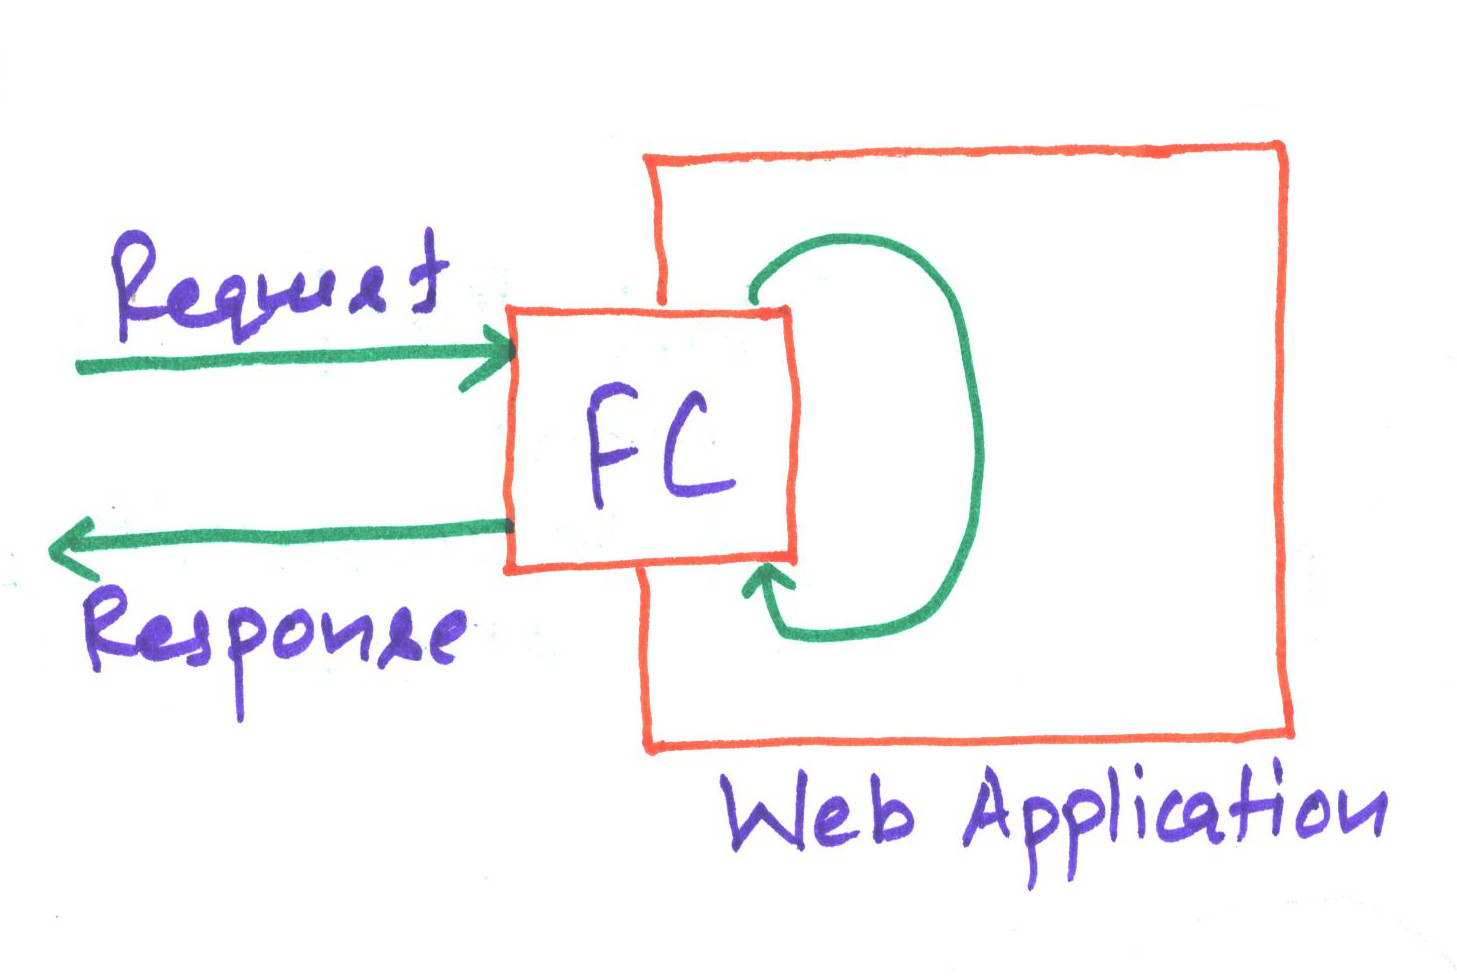 Request
FC
Response
Web Application